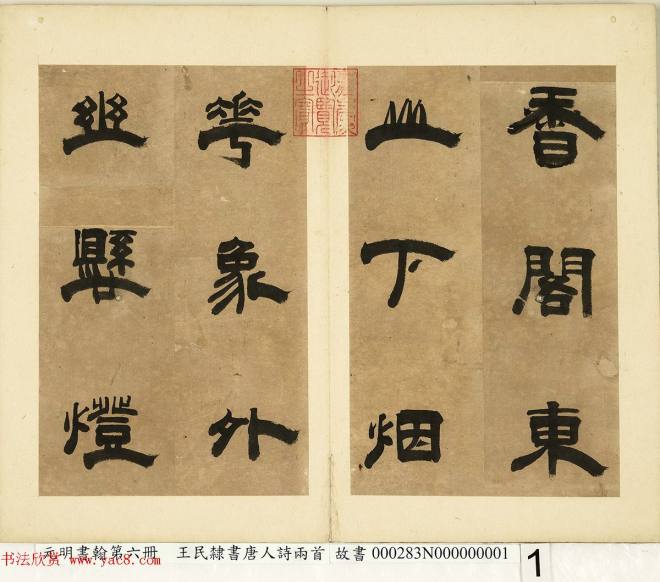 香閣東
山下烟
華象外
幽懸燈
元明書翰第六冊 王民隸書唐人詩兩首 故書 000283N000000001
书法欣赏 www.yac8.com
1